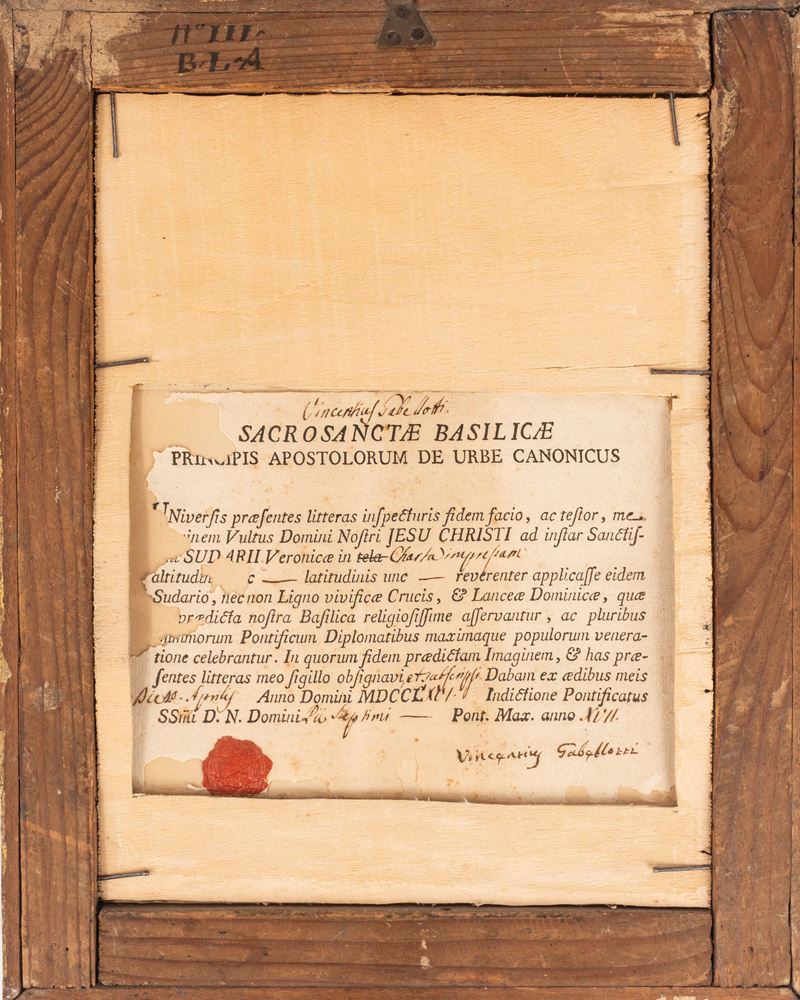 Nº III.
B. L. A
Vincentius Gabellotti.
SACROSANCTÆ BASILICÆ
PRINCIPIS APOSTOLORUM DE URBE CANONICUS
UNiverſis præſentes litteras inſpecturis fidem facio, ac teſtor, me
inem Vultus Domini Noſtri JESU CHRISTI ad inſtar Sanctiſ-
SUDARII Veronicæ in tela Charta impreſsam
altitudin c — latitudinis unc — reverenter applicaſſe eidem
Sudario, necnon Ligno vivificæ Crucis, & Lanceæ Dominicæ, quæ
prædicta noſtra Baſilica religioſiſſime aſſervantur, ac pluribus
mmorum Pontificum Diplomatibus maximaque populorum venera-
tione celebrantur. In quorum fidem prædictam Imaginem, & has præ-
ſentes litteras meo ſigillo obſignavi et ſubſcripſi Dabam ex ædibus meis
Die Aprilis Anno Domini MDCCC Indictione Pontificatus
SSm̃i D. N. Domini Pii Septimi — Pont. Max. anno
Vincentius Gabellotti